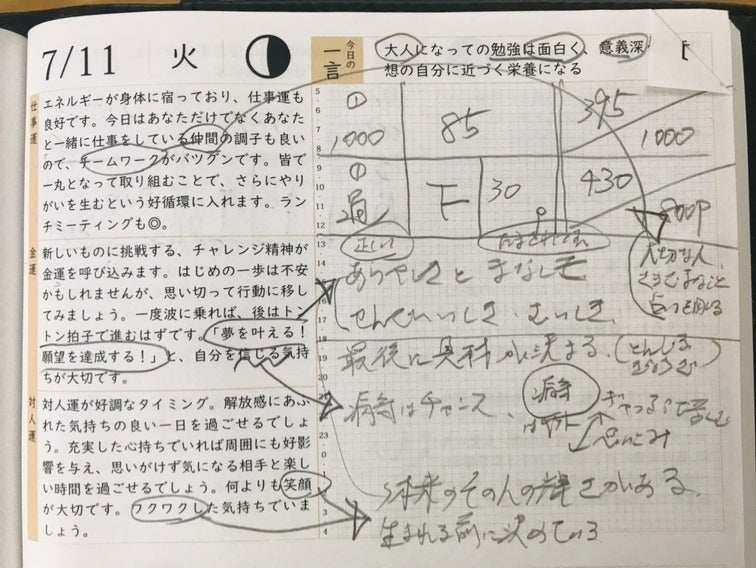 7/11 火
今日の一言
大人になっての勉強は面白く、意義深
想の自分に近づく栄養になる
仕事運
エネルギーが身体に宿っており、仕事運も
良好です。今日はあなただけでなくあなた
と一緒に仕事をしている仲間の調子も良い
ので、チームワークがバツグンです。皆で
一丸となって取り組むことで、さらにやり
がいを生むという好循環に入れます。ラン
チミーティングも◎。
金運
新しいものに挑戦する、チャレンジ精神が
金運を呼び込みます。はじめの一歩は不安
かもしれませんが、思い切って行動に移し
てみましょう。一度波に乗れば、後はトン
トン拍子で進むはずです。「夢を叶える!
願望を達成する!」と、自分を信じる気持
ちが大切です。
対人運
対人運が好調なタイミング。解放感にあふ
れた気持ちの良い一日を過ごせるでしょ
う。充実した心持ちでいれば周囲にも好影
響を与え、思いがけず気になる相手と楽し
い時間を過ごせるでしょう。何よりも笑顔
が大切です。ワクワクした気持ちでいま
しょう。
5
6
7
8
9
10
11
12
13
14
15
16
17
18
19
20
23
0
1
2
3
4
① 1000
85
395
1000
①
下
30
430
800P
正しい
大切な人
最後に
が決まる。
病気はチャンス、
病気
思いこみ
本来のその人の輝きがある
生まれる前に決めている